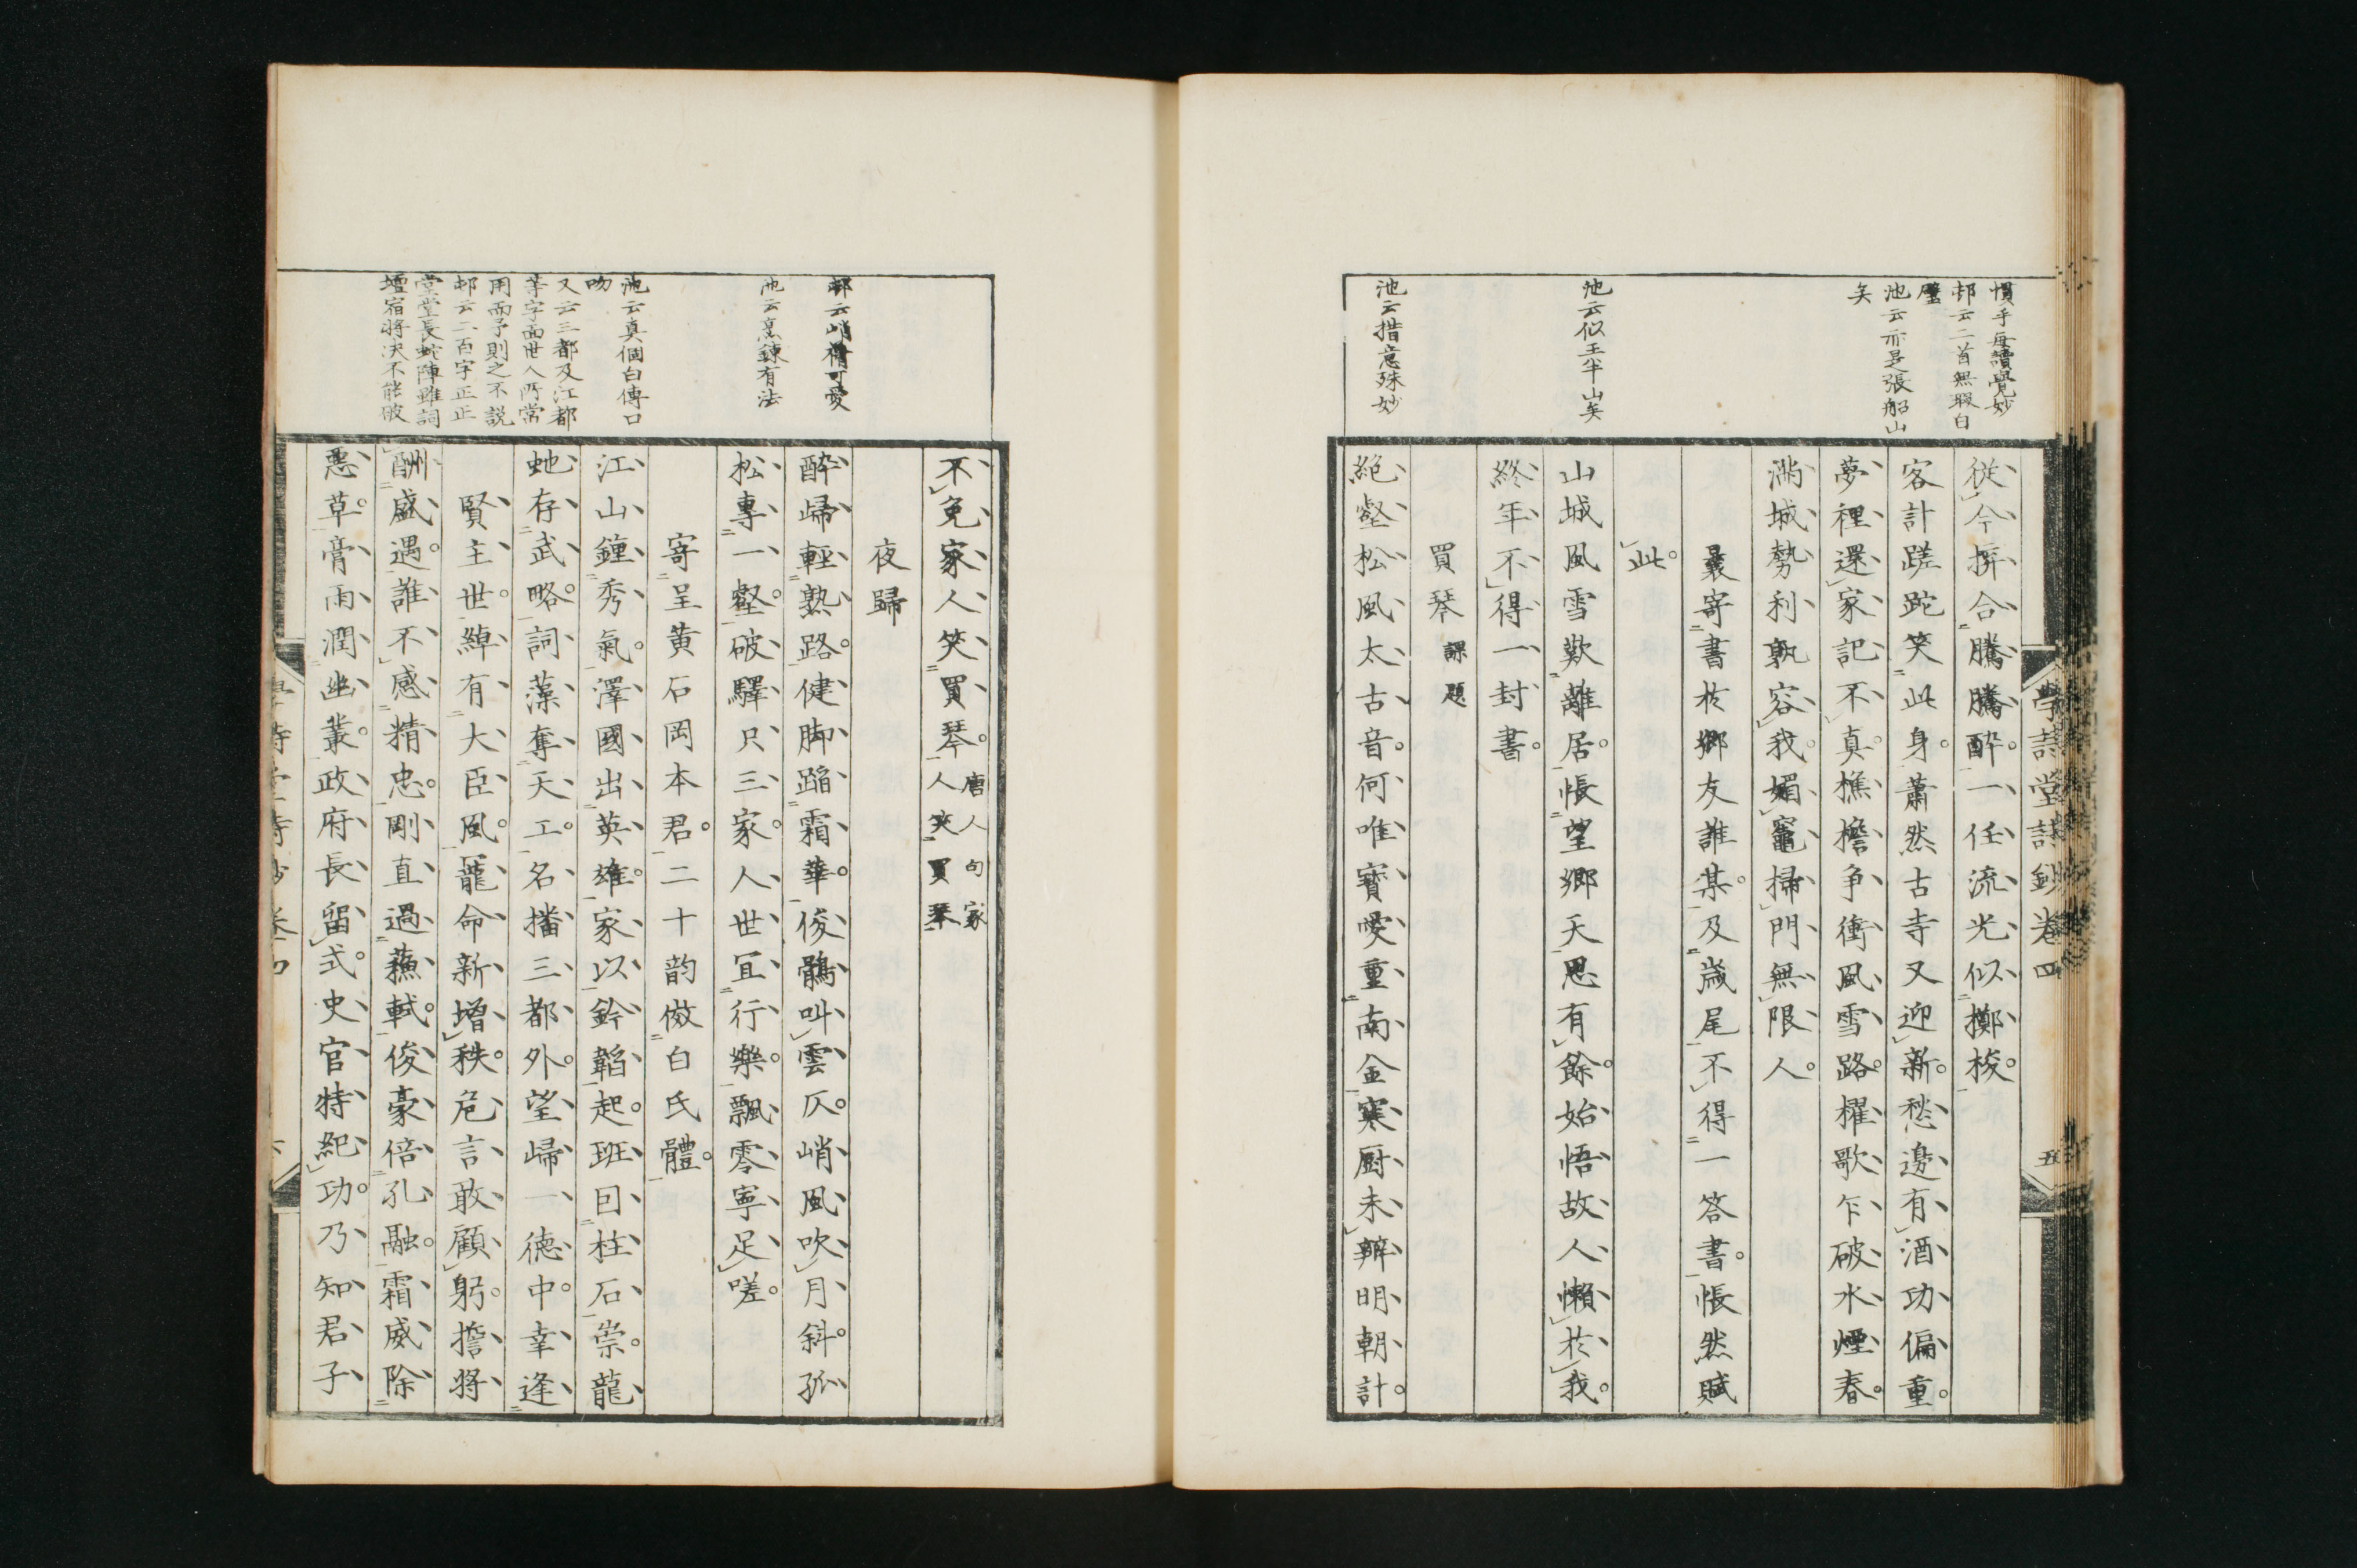 慣手每讀覺妙
邨云二首無瑕白
璧
池云亦是張船山
矣
池云似王半山矣
池云措意殊妙
學詩堂詩鈔卷四
五
從今拚合騰騰醉一任流光似擲梭
客計蹉跎笑此身蕭然古寺又迎新愁邊有酒功偏重
夢裡還家記不真樵擔爭衝風雪路櫂歌乍破水煙春
滿城勢利孰容我媚竈掃門無限人
曩寄書於鄉友誰某及歲尾不得一答書悵然賦
此
山城風雪歎離居悵望鄉天思有餘始悟故人懶於我
終年不得一封書
買琴 課題
絕壑松風太古音何唯寶愛重南金寒厨未辨明朝計
邨云峭㒒可愛
池云烹鍊有法
池云真個白傅口
吻
又云三都及江都
等字面世人所常
用而予則之不説
邨云二百字正正
堂堂長蛇陣雖詞
壇宿將决不能破
不免家人笑買琴 唐人句家
人笑買琴
夜歸
酔歸輕熟路健脚蹈霜華俊鶻叫雲仄峭風吹月斜孤
松專一壑破驛只三家人世宜行樂飄零寧足嗟
寄呈黄石岡本君二十韵傚白氏體
江山鍾秀氣澤國出英雄家以鈐韜起班曰柱石崇龍
虵存武略詞藻奪天工名播三都外望歸一德中幸逢
賢主世綽有大臣風寵命新增秩危言敢顧躬擔將
酬盛遇誰不感精忠剛直過蘓軾俊豪倍孔融霜威除
惡草膏雨潤幽叢政府長留式史官特紀功乃知君子